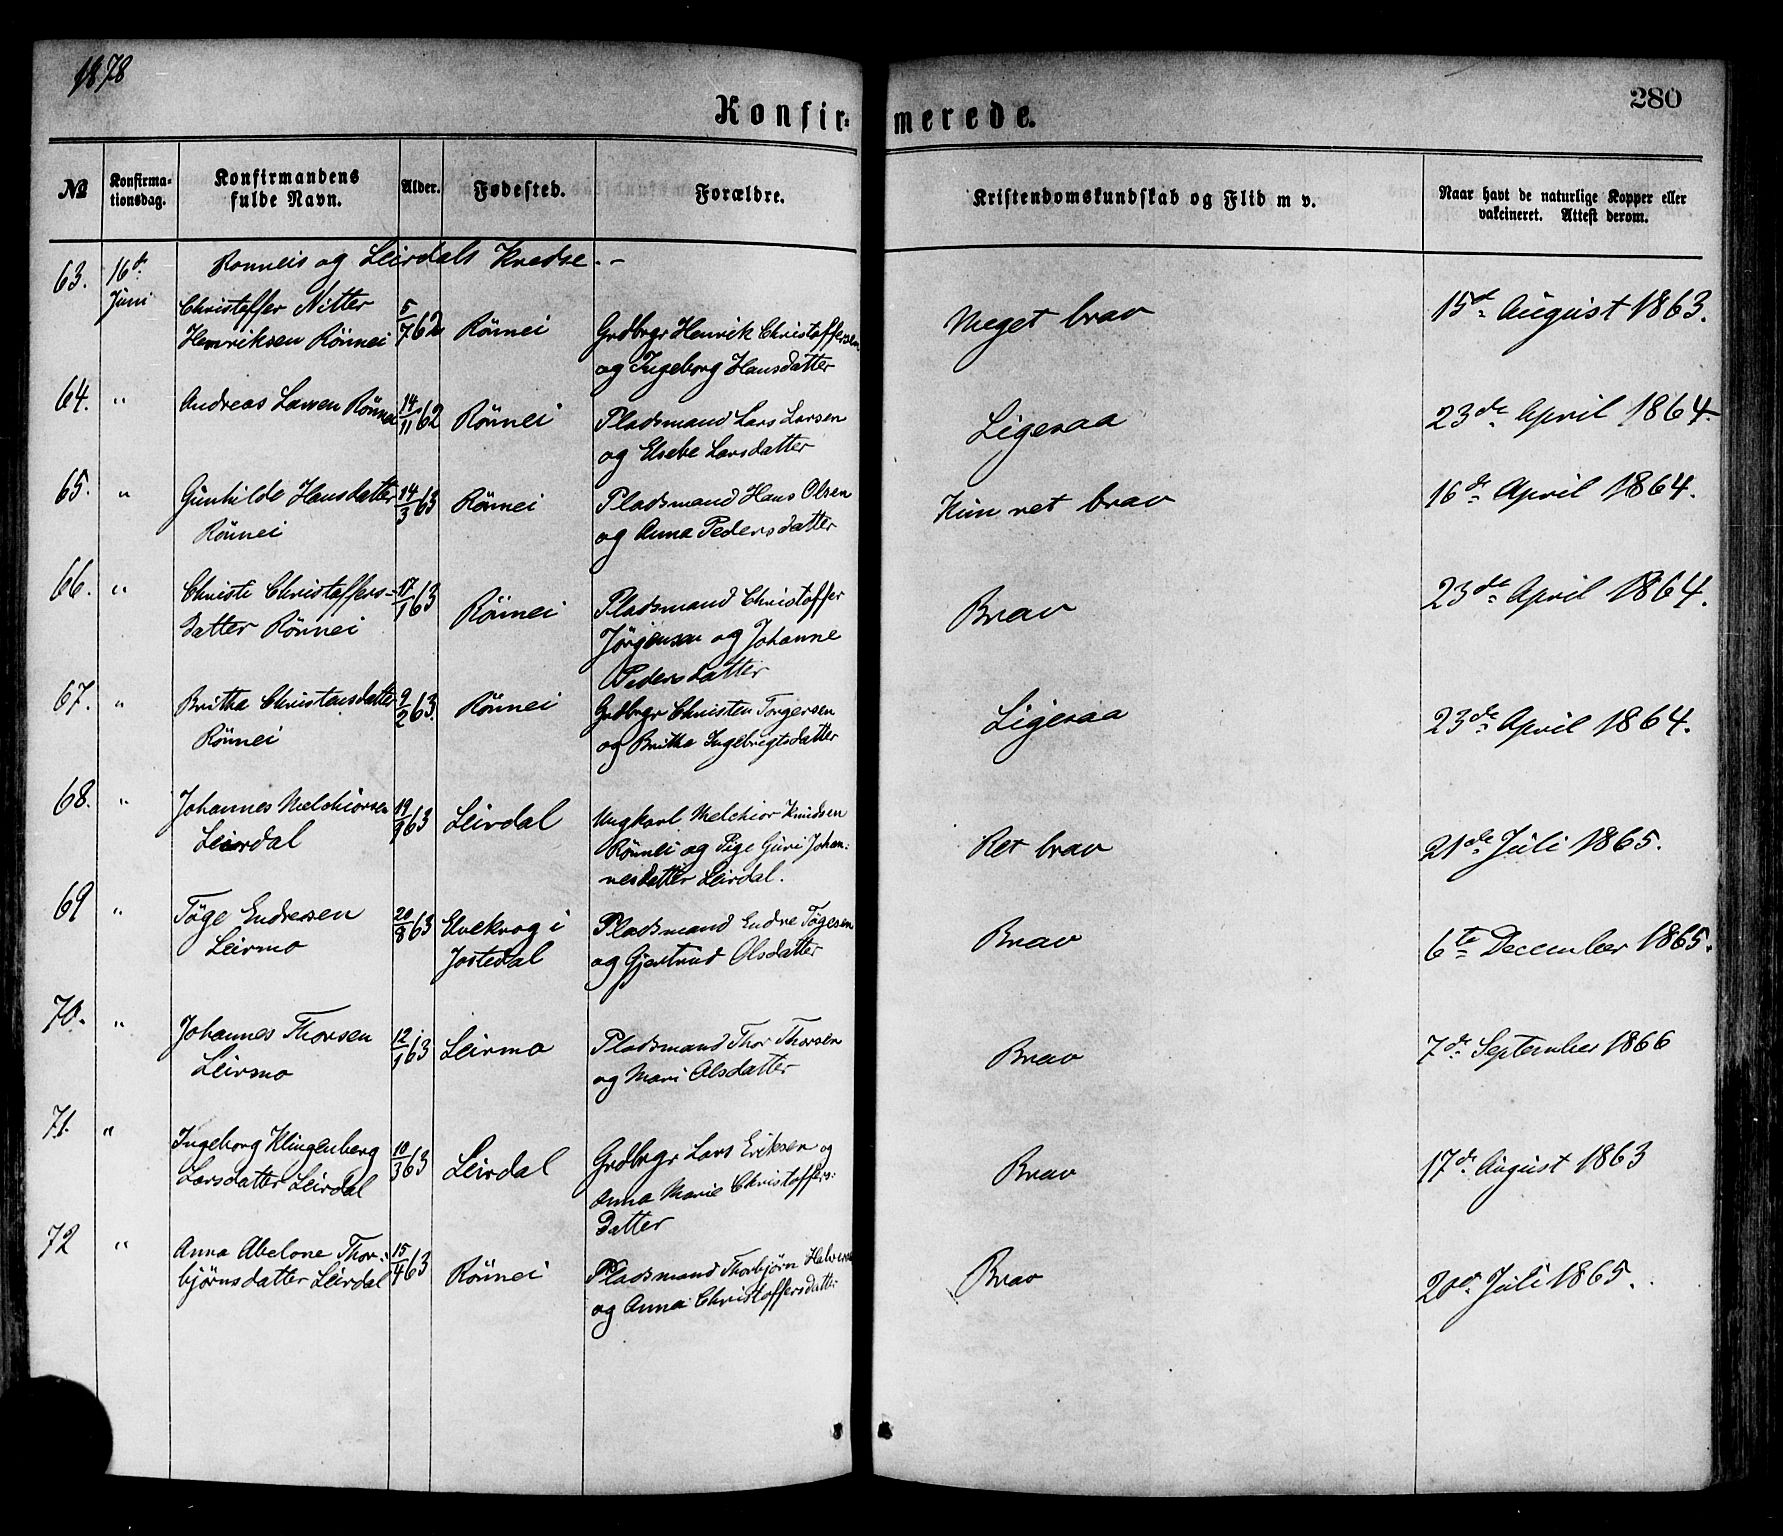 1878
280
Konfir- merede.
№
Konfirma-
tionsdag.
Konfirmandens
fulde Navn.
Alder.
Fødested.
Forældre.
Kristendomskundskab og Flid m v.
Naar havt de naturlige Kopper eller
vakcineret. Attest derom.
Ronneis og Leirdals Kredse. -
63. 16de Juni
Christoffer Nitter
Henriksen Rönnei
5/7 62
Rönnei
Grdbrgr Henrik Christoffersen
og Ingeborg Hansdatter
Meget brav
15de August 1863.
64. "
Andreas Larsen Rönnei
14/11 62
Rönnei
Pladsmand Lars Larsen
og Elsebe Larsdatter
Ligesaa
23de April 1864.
65. "
Gunhilde Hansdatter
Rönnei
14/3 63
Rönnei
Pladsmand Hans Olsen
og Anna Pedersdatter
Kun ret brav
16de April 1864.
66. "
Christi Christoffers-
datter Rönnei
17/1 63
Rönnei
Pladsmand Christoffer
Jörgensen og Johanne
Pedersdatter
Brav
23de April 1864.
67. "
Britha Christensdatter
Rönnei
9/2 63.
Rönnei
Grdbrgr Christen Torgersen
og Britha Ingebrigtsdatter
Ligesaa
23de April 1864.
68. "
Johannes Melchiorsen
Leirdal
19/9 63
Leirdal
Ungkarl Melchior Knudsen
Rönnei og Pige Guri Johan:
nesdatter Leirdal.
Ret brav
21de Juli 1865.
69 "
Töge Endresen
Leirmo
20/8 63
Elvekrog i
Jostedal
Pladsmand Endre Tögesen
og Gjertrud Olsdatter
Brav
6te December 1865.
70. "
Johannes Thorsen
Leirmo
12/1 63
Leirmo
Pladsmand Thor Thorsen
og Mari Olsdatter
Brav
7de September 1866
71. "
Ingeborg Klingenberg
Larsdatter Leirdal
10/3 63
Leirdal
Grdbrgr Lars Eriksen og
Anna Marie Christoffers:
datter
Brav
17de August 1863
72 "
Anna Abelone Thor:
bjørnsdatter Leirdal
15/4 63
Rönnei
Pladsmand Thorbjørn Halvorsen
og Anna Christoffersdatter
Brav
20de Juli 1865.